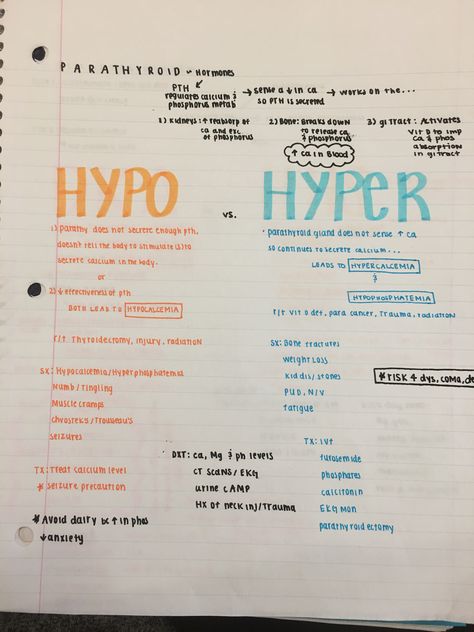 PARATHYROID ~ Hormones
PTH
regulates calcium &
phosphorus metab
→ sense a ↓ in ca
so PTH is secreted
→ works on the...
1) Kidneys: ↑ reabsorp of
ca and exc
of phosphorus
2) Bone: Breaks down
to release ca
& phosphorus
↑ ca in Blood
3) gi Tract: Activates
Vit D to imp
ca & phos
absorption
in gi tract
HYPO
vs.
HYPER
1) parathy does not secrete enough pth,
doesn't tell the body to stimulate (s) to
secrete calcium in the body.
or
2) ↓ effectiveness of pth
BOTH LEAD TO HYPOCALCEMIA
r/t Thyroidectomy, injury, radiation
Sx: Hypocalcemia/Hyperphosphatemia
Numb/Tingling
Muscle cramps
chvosteks/Trousseau's
seizures
TX: Treat calcium level
* seizure precaution
* Avoid dairy bc ↑ in phos
↓ anxiety
• parathyroid gland does not sense ↑ ca
so continues to secrete calcium...
LEADS TO HYPERCALCEMIA
&
HYPOPHOSPHATEMIA
r/t vit D def, para cancer, Trauma, radiation
Sx: Bone fractures
weight Loss
kid dis/stones
PUD, N/V
fatigue
* RISK 4 dys, COMA, de
DXT: ca, Mg & ph levels
CT scans/EKG
urine cAMP
HX of neck inj/Trauma
TX: IVF
furosemide
phosphates
calcitonin
EKG MON
parathyroidectomy